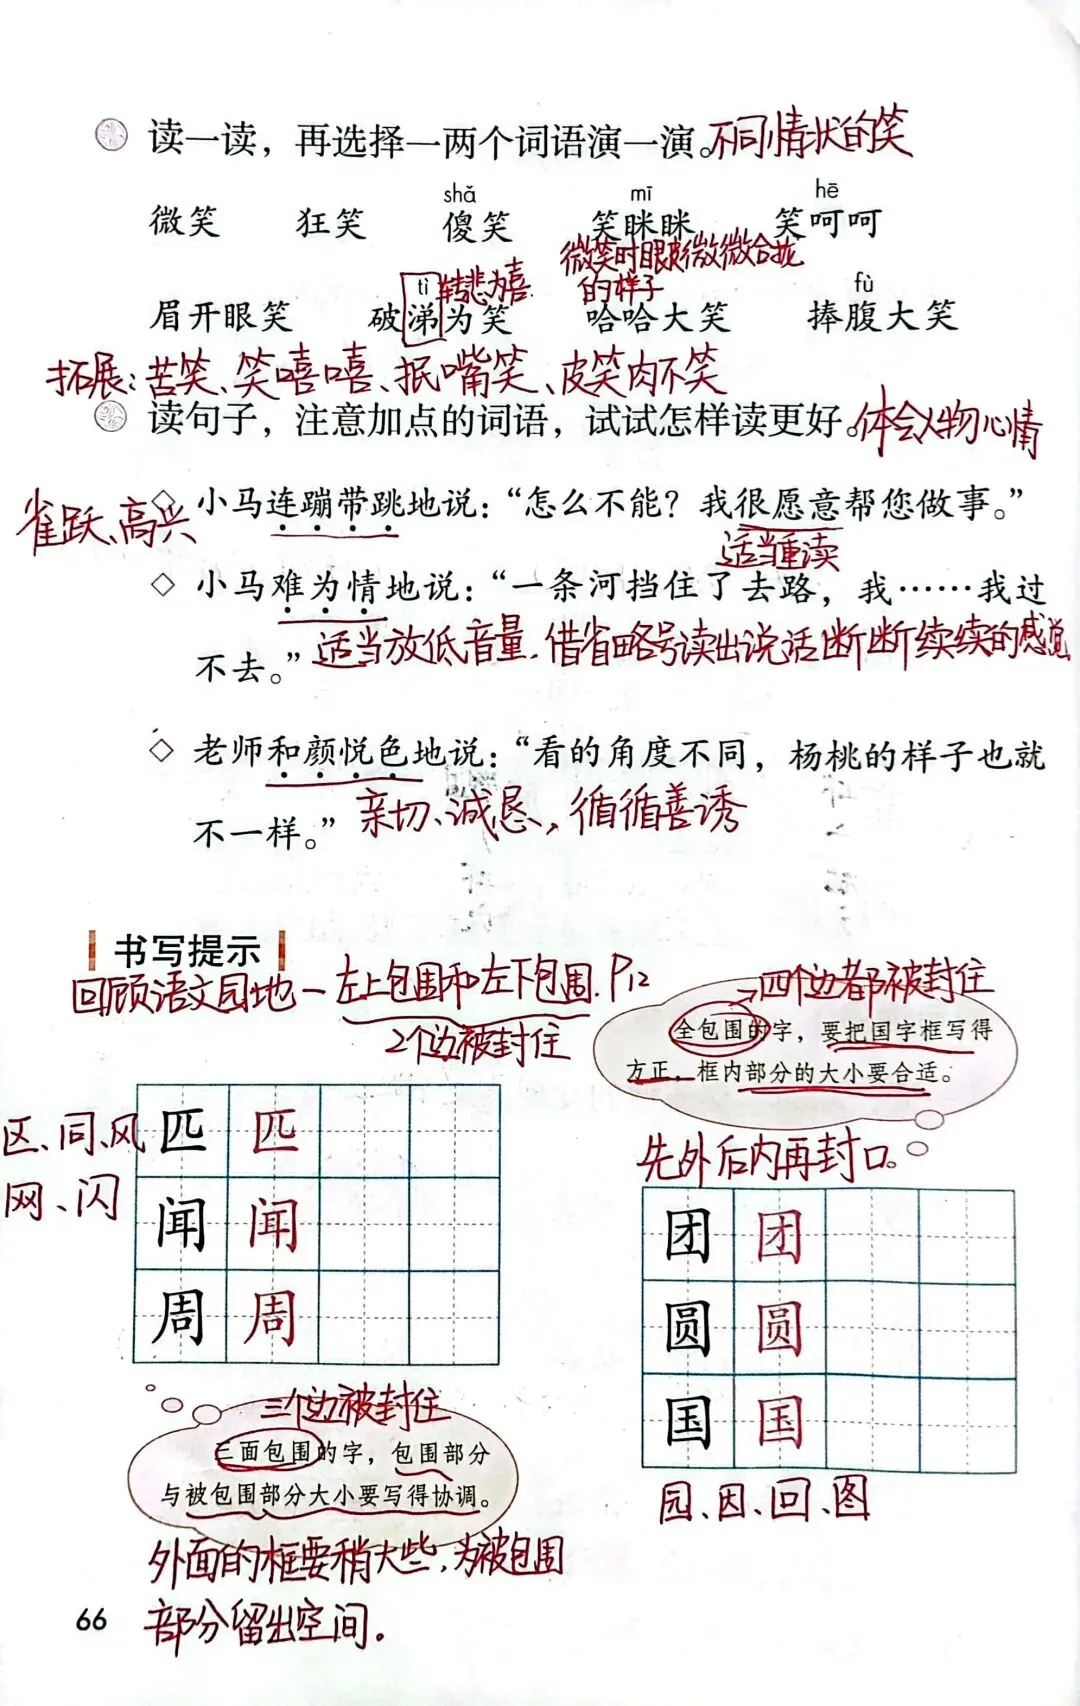 读一读，再选择一两个词语演一演。不同情状的笑
shǎ mī hē
微笑 狂笑 傻笑 笑眯眯 笑呵呵
微笑时眼皮微微合拢
的样子
tì 转悲为喜 fù
眉开眼笑 破涕为笑 哈哈大笑 捧腹大笑
拓展：苦笑、笑嘻嘻、抿嘴笑、皮笑肉不笑
读句子，注意加点的词语，试试怎样读更好。体会人物心情
雀跃、高兴
◇ 小马连蹦带跳地说：“怎么不能？我很愿意帮您做事。”
适当重读
◇ 小马难为情地说：“一条河挡住了去路，我……我过
不去。” 适当放低音量，借省略号读出说话断断续续的感觉
◇ 老师和颜悦色地说：“看的角度不同，杨桃的样子也就
不一样。” 亲切、诚恳，循循善诱
书写提示
回顾语文园地一左上包围和左下包围.P12
2个边被封住
四个边都被封住
全包围的字，要把国字框写得
方正，框内部分的大小要合适。
先外后内再封口。
区、同、风
网、闪
匹 匹
闻 闻
周 周
团 团
圆 圆
国 国
园、因、回、图
三个边被封住
三面包围的字，包围部分
与被包围部分大小要写得协调。
外面的框要稍大些，为被包围
部分留出空间.
66